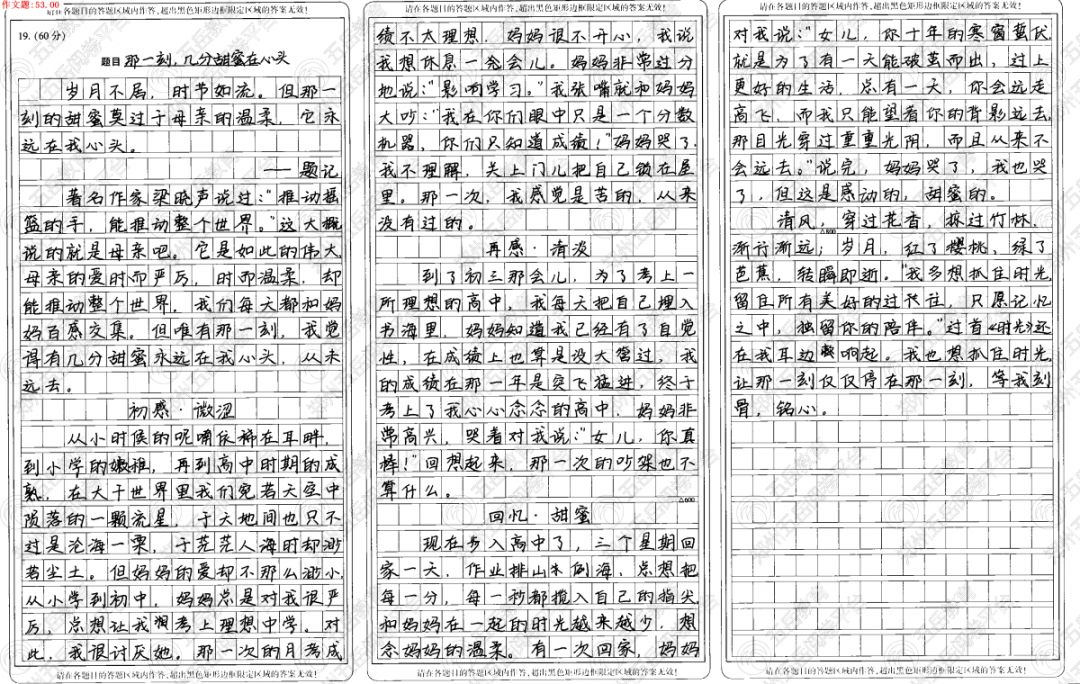 作文题:53.00
请在各题目的答题区域内作答,超出黑色矩形边框限定区域的答案无效!
19.(60分)
题目 那一刻,几分甜蜜在心头
岁月不居,时节如流。但那一
刻的甜蜜莫过于母亲的温柔,它永
远在我心头。
——题记
著名作家梁晓声说过:"推动摇
篮的手,能推动整个世界。"这大概
说的就是母亲吧。它是如此的伟大,
母亲的爱时而严厉,时而温柔,却
能推动整个世界,我们每天都和妈
妈百感交集。但唯有那一刻,我觉
得有几分甜蜜永远在我心头,从未
远去。
初感·微涩
从小时候的呢喃依稀在耳畔,
到小学的嫩稚,再到高中时期的成
熟,在大千世界里我们宛若天空中
陨落的一颗流星,于天地间也只不
过是沧海一栗,于芸芸人海时却渺
若尘土。但妈妈的爱却不那么渺小,
从小学到初中,妈妈总是对我很严
厉,总想让我考上理想中学。对
此,我很讨厌她。那一次的月考成
请在各题目的答题区域内作答,超出黑色矩形边框限定区域的答案无效!
请在各题目的答题区域内作答,超出黑色矩形边框限定区域的答案无效!
绩不太理想,妈妈很不开心,我说
我想休息一充会儿。妈妈非常过分
地说:"影响学习。"我张嘴就和妈妈
大吵:"我在你们眼中只是一个分数
机器,你们只知道成绩!"妈妈哭了,
我不理解,关上门儿把自己锁在屋
里。那一次,我感觉是苦的,从来
没有过的。
再感·清淡
到了初三那会儿,为了考上一
所理想的高中,我每天把自己埋入
书海里,妈妈知道我已经有了自觉
性,在成绩上也算是没大管过,我
的成绩在那一年是突飞猛进,终于
考上了我心心念念的高中,妈妈非
常高兴,哭着对我说:"女儿,你真
棒!"回想起来,那一次的吵架也不
算什么。
△600
回忆·甜蜜
现在步入高中了,三个星期回
家一天,作业排山倒海,总想把
每一分,每一秒都揽入自己的指尖
和妈妈在一起的时光越来越少,想
念妈妈的温柔。有一次回家,妈妈
请在各题目的答题区域内作答,超出黑色矩形边框限定区域的答案无效!
请在各题目的答题区域内作答,超出黑色矩形边框限定区域的答案无效!
对我说:"女儿,你十年的寒窗蛰伏
就是为了有一天能破茧而出,过上
更好的生活,总有一天,你会远走
高飞,而我只能望着你的背影远去,
那目光穿过重重光阴,而且从来不
会远去。"说完,妈妈哭了,我也哭
了,但这是感动的,甜蜜的。
清风,穿过花香,掠过竹林,
△800
渐行渐远;岁月,红了樱桃,绿了
芭蕉,转瞬即逝。"我多想抓住时光,
留住所有美好的过往,只愿记忆
之中,独留你的陪伴。"这首《时光》还
在我耳边响起。我也想抓住时光,
让那一刻仅仅停在那一刻,等我刻
骨,铭心。
请在各题目的答题区域内作答,超出黑色矩形边框限定区域的答案无效!